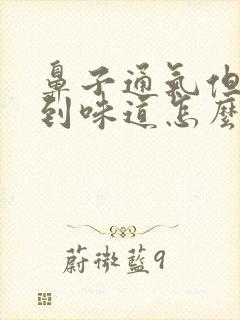 鼻子通氣但
到味道怎麼
蔚微藍9